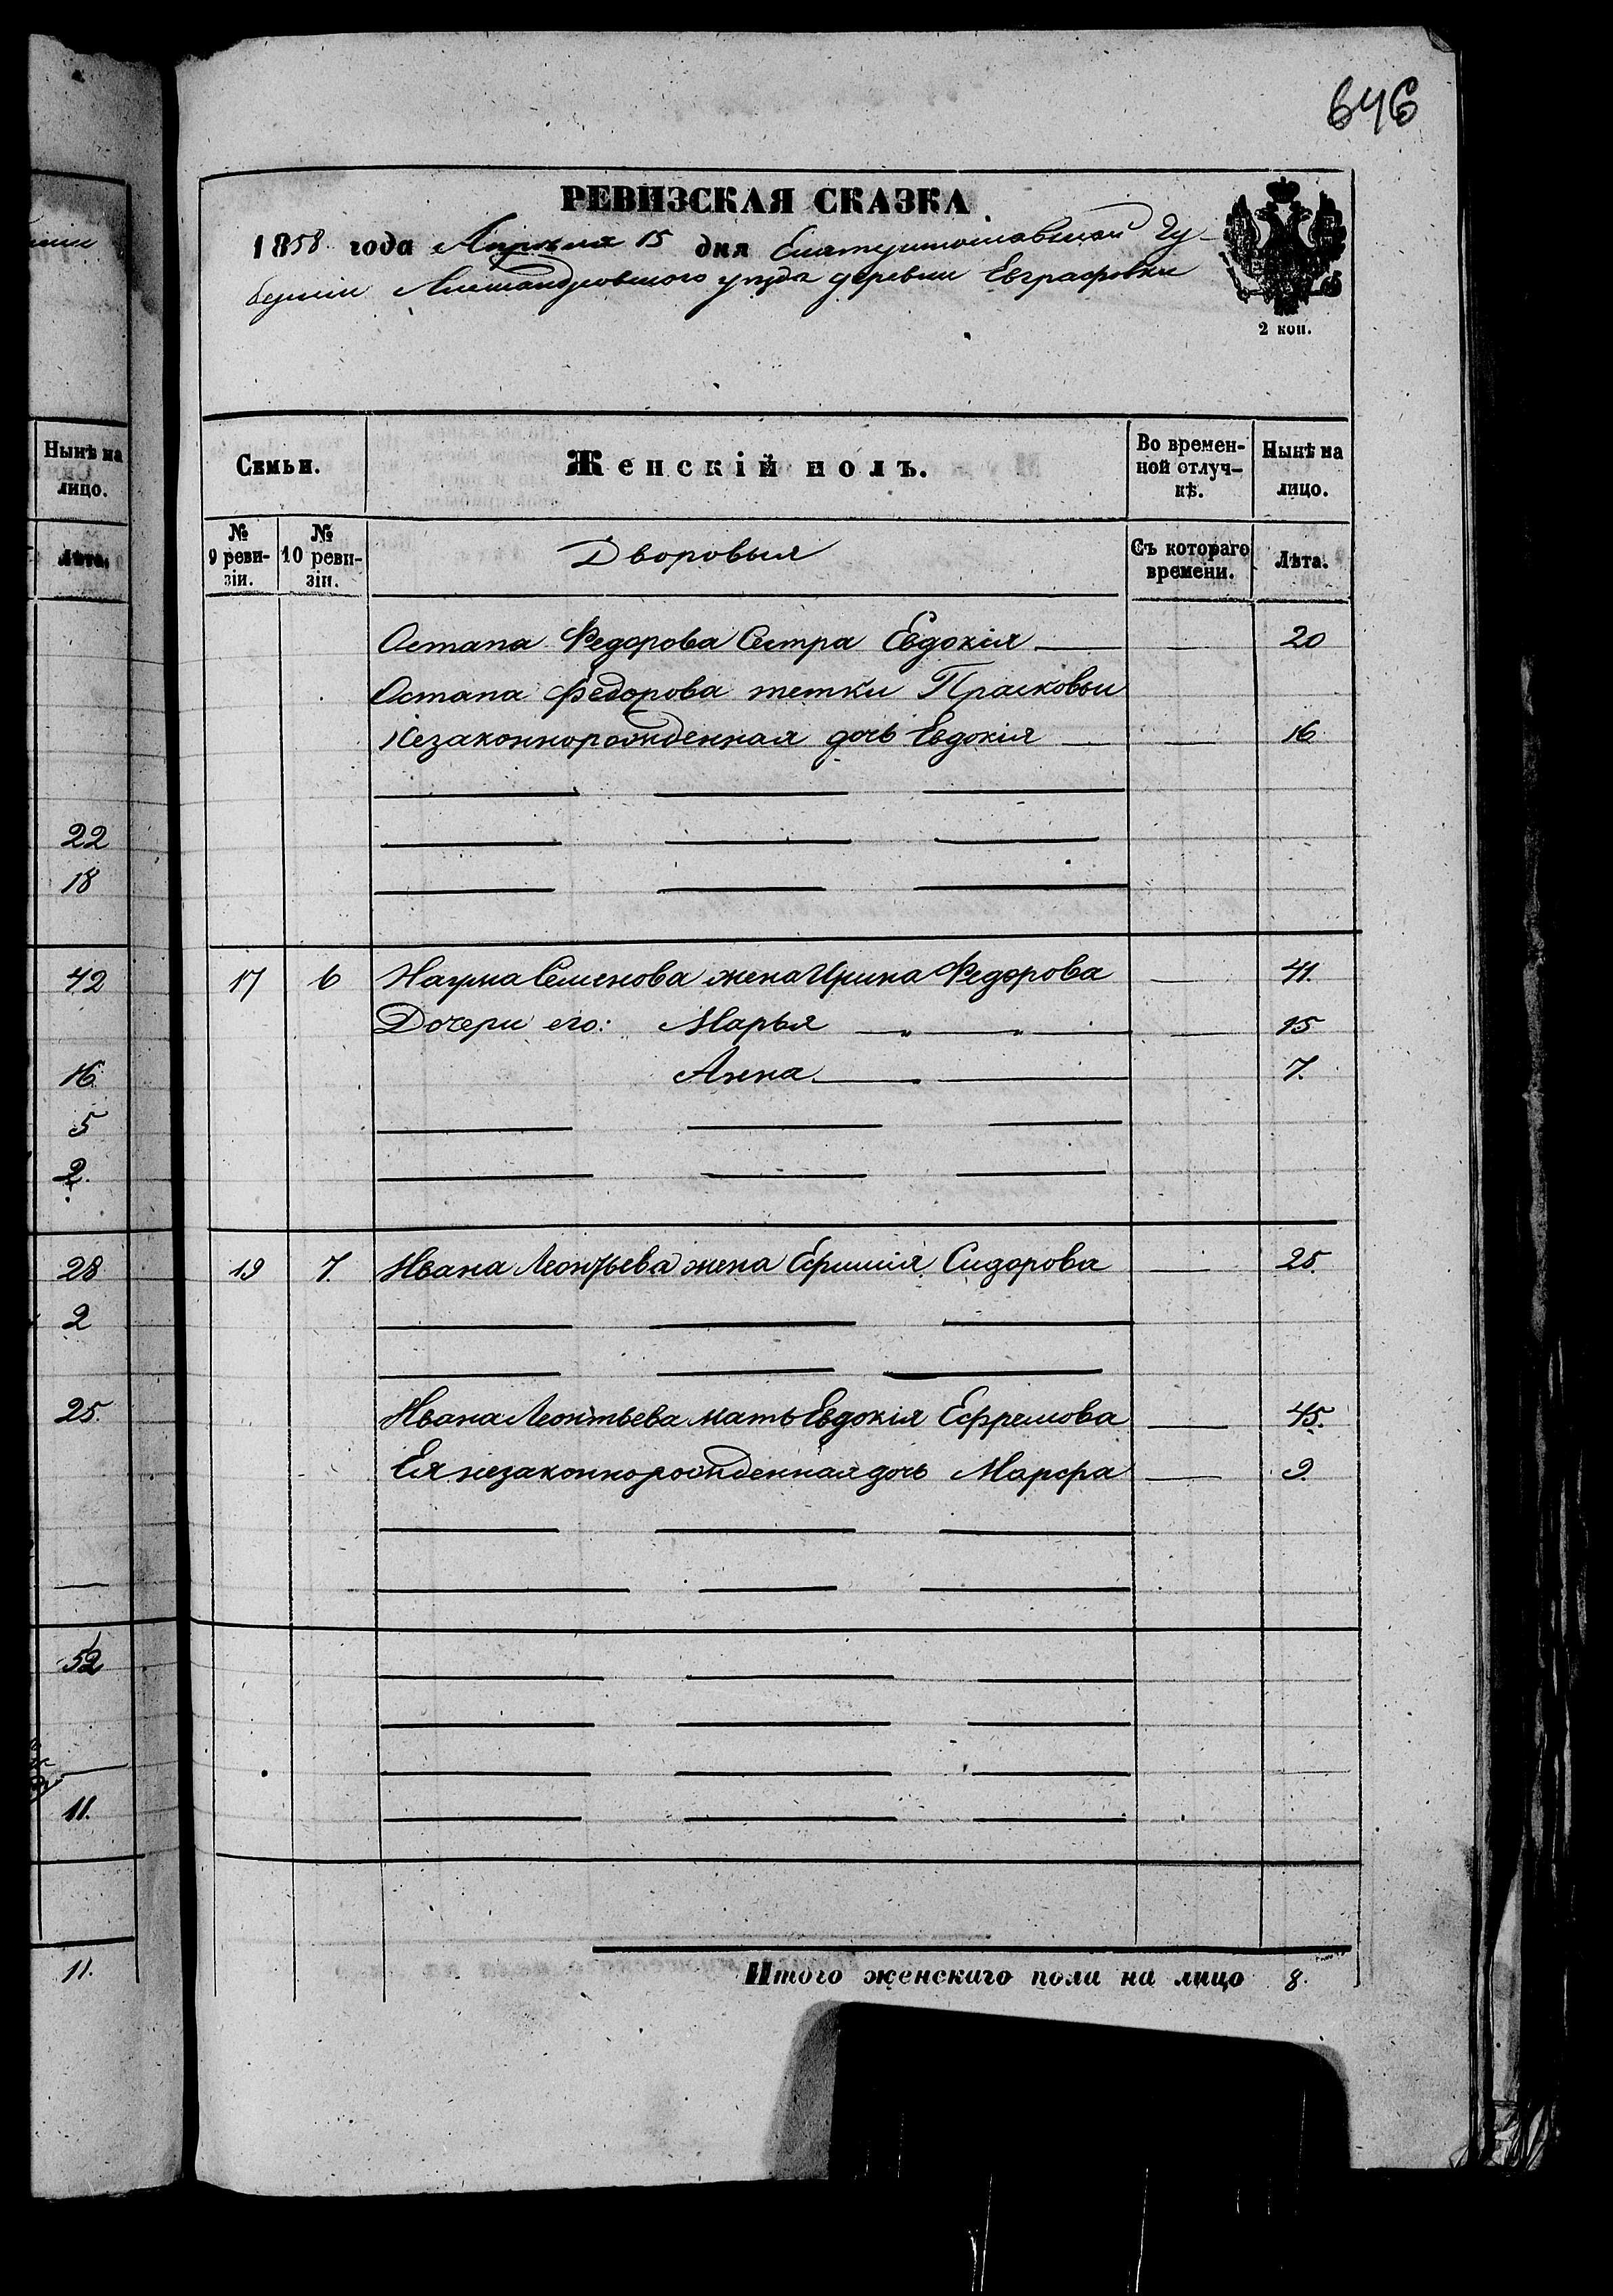 646
РЕВИЗСКАЯ СКАЗКА
1858 года Апреля 15 дня Екатеринославской Гу-
берніи Александровскаго уезда деревни Евграфовки
2 коп.
Нынѣ на лицо.
Лѣта.
22
18
42
16
5
2
28
2
25.
52
11.
11.
Семьи.
Женскій полъ.
Во времен-
ной отлуч-
кѣ.
Нынѣ на
лицо.
№
9 реви-
зіи.
№
10 реви-
зіи.
Дворовыя
Съ котораго
времени.
Лѣта.
Остапа Федорова Сестра Евдокія — — 20
Остапа Федорова тетки Прасковьи
Незаконнорожденная дочь Евдокія — — 16
17 6 Наума Семенова жена Ирина Федорова — 41.
Дочери его: Марья — „ — „ — — 15
Анна — 7.
19 7. Ивана Леонтьева жена Ефимія Сидорова — 25.
Ивана Леонтьева мать Евдокія Ефремова — 45.
Ея незаконнорожденная дочь Марфа — 9.
Итого женскаго пола на лицо 8.